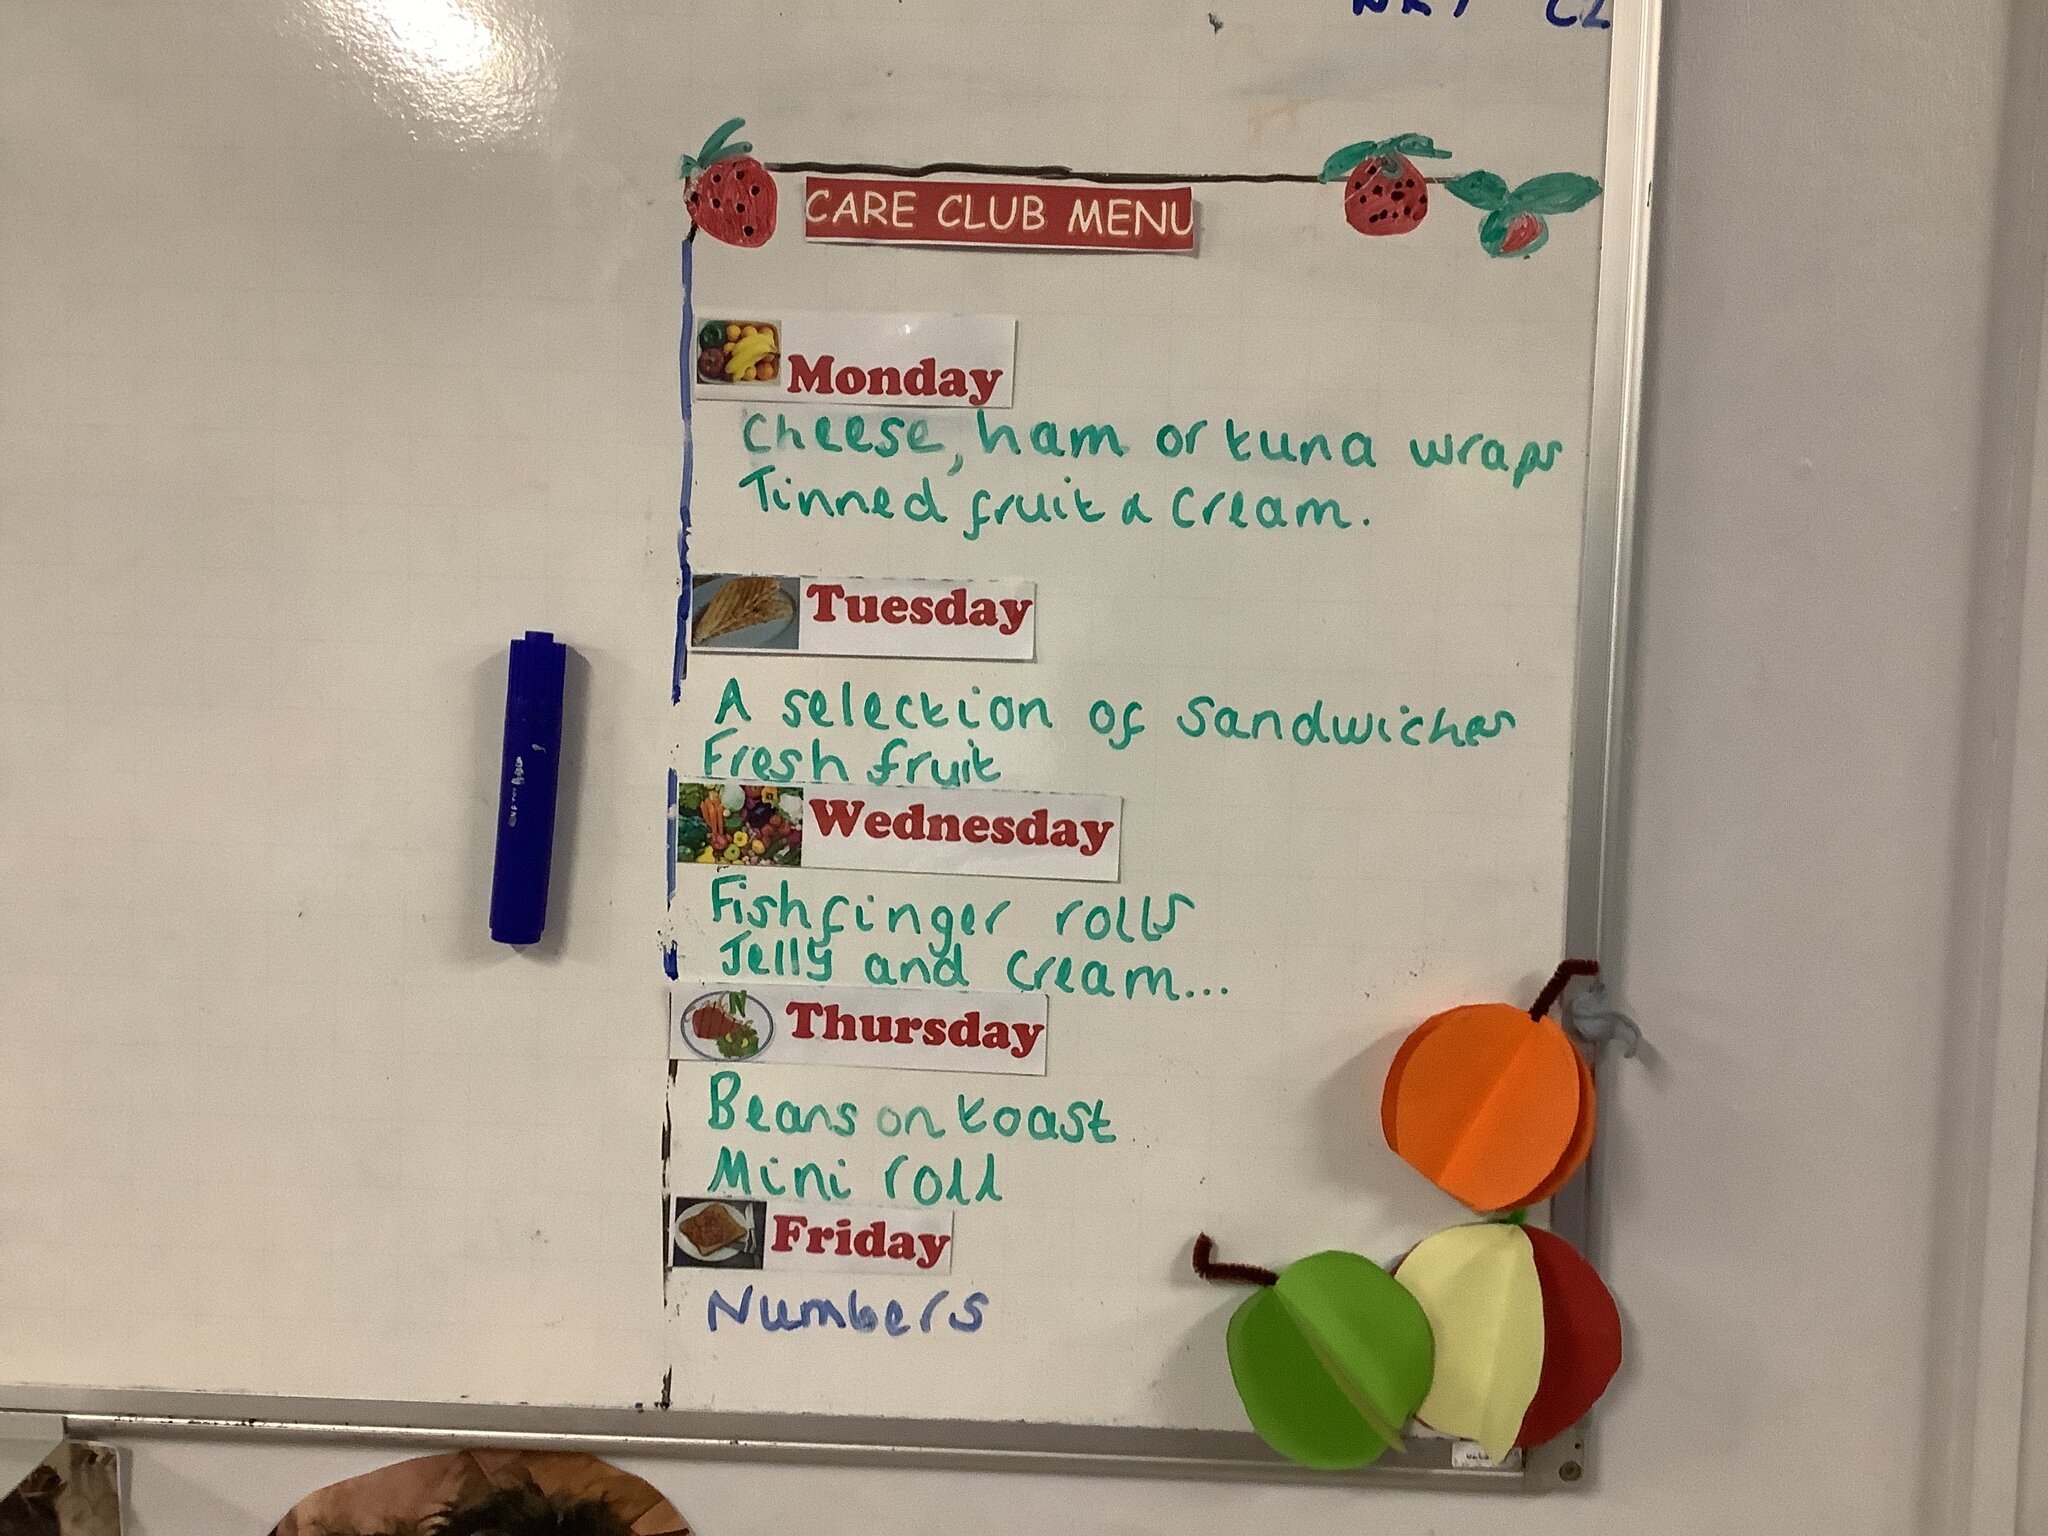 CARE CLUB MENU
Monday
Cheese, ham or tuna wraps
Tinned fruit & cream.
Tuesday
A selection of sandwiches
Fresh fruit
Wednesday
Fishfinger rolls
Jelly and cream...
Thursday
Beans on toast
Mini roll
Friday
Numbers